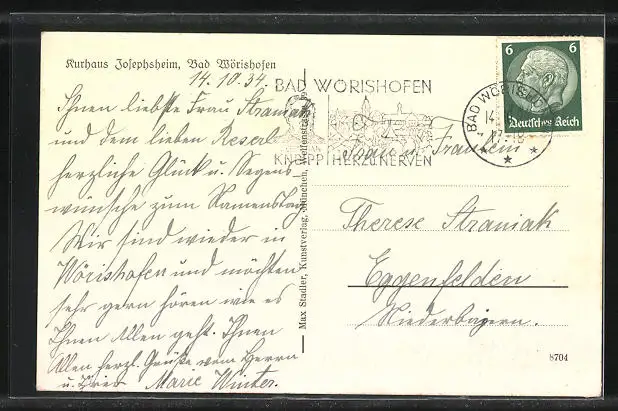 Kurhaus Josephsheim, Bad Wörishofen
14.10.34.
Ihnen liebste Frau Straniak
und dem lieben Reserl
herzliche Glück u. Segens
wünsche zum Namenstag.
Wir sind wieder in
Wörishofen und möchten
sehr gern hören wie es
Ihnen Allen geht. Ihnen
Allen herzl. Grüße vom Herrn
u. Marie Winter.
Max Stadler, Kunstverlag, München,
BAD WÖRISHOFEN
KNEIPP HERZ U. NERVEN
BAD WÖRISHOFEN
14
6 6
Deutsches Reich
u. Fräulein
Therese Straniak
Eggenfelden
Niederbayern.
8704